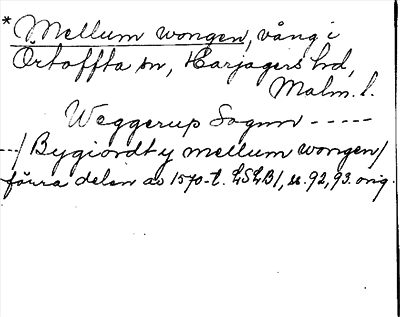 * Mellum wongen, vång i
Örtoffta sn, Harjagers hd,
Malm. l.
Weggerup Sognn -----
--/ Bygiordt y mellum wongen/
förra delen av 1570-t. LSLB1, s. 92, 93. orig.